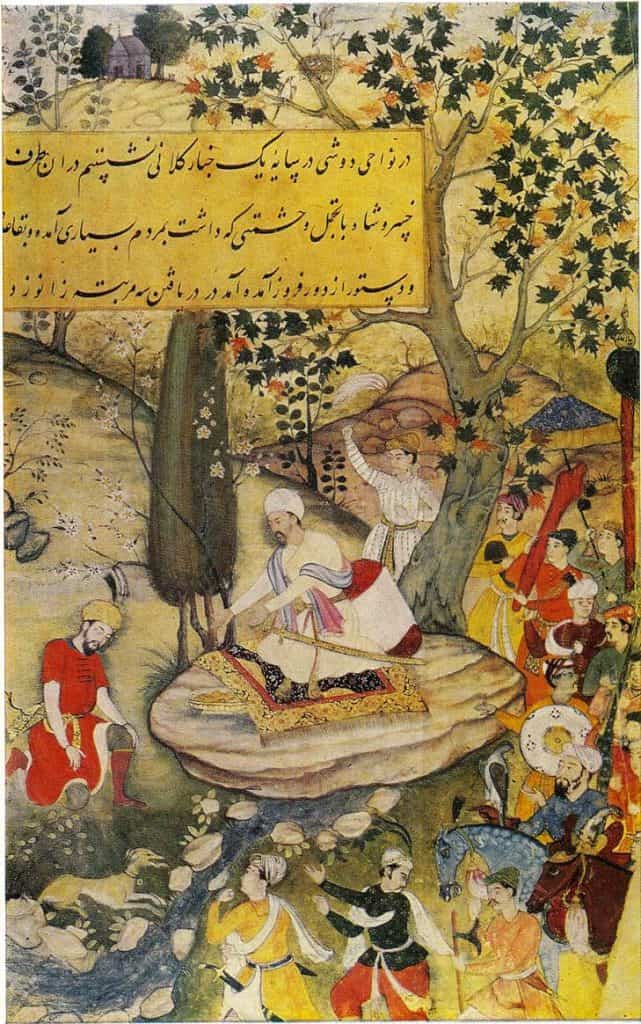 در نواحی دوشی در سایهٔ یک چنار کلانی نشستیم در ان طرف
خسرو شاه با تجمل و حشمتی که داشت بمردم بسیاری آمده و
و دستور از دور فروز آمده آمد در دریافتن سه مرتبه زانو زد